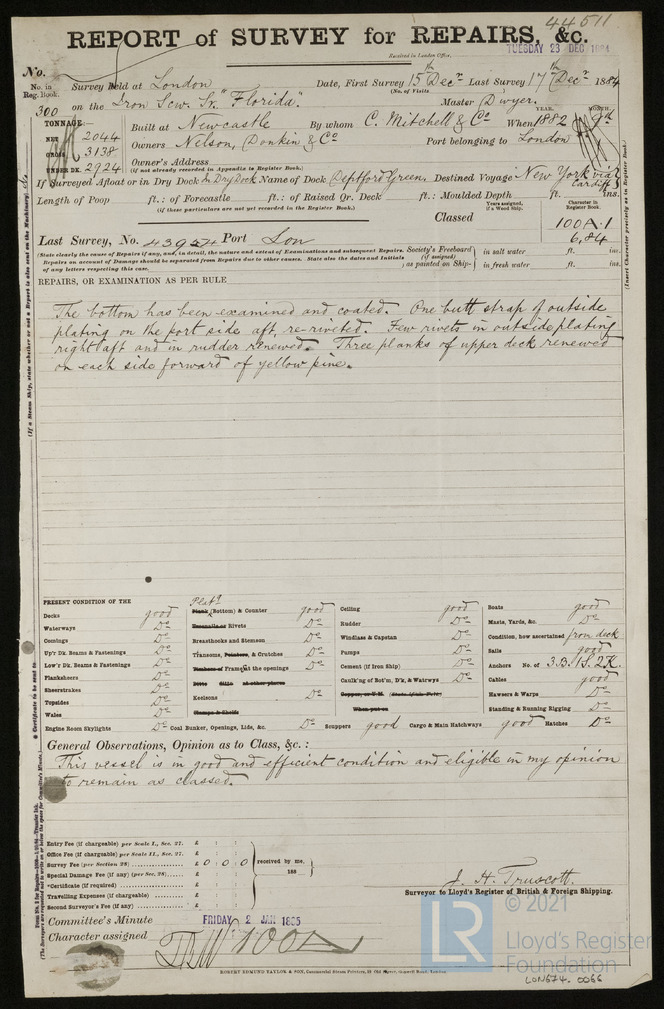 44511
REPORT of SURVEY for REPAIRS, &c.
Received in London Office,
TUESDAY 23 DEC 1884
No.
No. in Reg. Book.
300
Survey held at London Date, First Survey 15th Decr Last Survey 17th Decr 1884
(No. of Visits
on the Iron Scw. Sr. "Florida". Master Dwyer.
TONNAGE
NET 2044
GROSS 3138
UNDER DK. 2924
YEAR. MONTH.
Built at Newcastle By whom C. Mitchell & Co When 1882 9th
Owners Nelson, Donkin & Co Port belonging to London
Owner's Address
(if not already recorded in Appendix to Register Book.)
If Surveyed Afloat or in Dry Dock In Dry Dock Name of Dock Deptford Green. Destined Voyage New York via Cardiff
Length of Poop ft.: of Forecastle ft.: of Raised Qr. Deck ft.: Moulded Depth ft. ins.
(if these particulars are not yet recorded in the Register Book.)
Years assigned, if a Wood Ship.
Character in Register Book.
Classed 100A.1
6,84
Last Survey, No. 43924 Port Lon
(State clearly the cause of Repairs if any, and, in detail, the nature and extent of Examinations and subsequent Repairs.
Repairs on account of Damage should be separated from Repairs due to other causes. State also the dates and Initials
of any letters respecting this case.
Society's Freeboard (if assigned) as painted on Ship- in salt water ft. ins.
in fresh water ft. ins.
REPAIRS, OR EXAMINATION AS PER RULE
The bottom has been examined and coated. One butt strap of outside
plating on the port side aft, re-riveted. Few rivets in outside plating
right aft and in rudder renewed. Three planks of upper deck renewed
on each side forward of yellow pine.
PRESENT CONDITION OF THE
Decks good
Waterways Do
Comings Do
Up'r Dk. Beams & Fastenings Do
Low'r Dk. Beams & Fastenings Do
Planksheers Do
Sheerstrakes Do
Topsides Do
Wales Do
Engine Room Skylights Do
Platg
Plank (Bottom) & Counter good
Treenails or Rivets Do
Breasthooks and Stemson Do
Transoms, Pointers, & Crutches Do
Timbers of Frames at the openings Do
Ditto ditto at other places
Keelsons Do
Clamps & Shelfs
Coal Bunker, Openings, Lids, &c. Do
Ceiling good
Rudder Do
Windlass & Capstan Do
Pumps Do
Cement (if Iron Ship) Do
Caulk'ng of Bot'm, D'k, & Watrwys Do
Copper, or Y.M. (State if on Felt)
When put on
Scuppers good Cargo & Main Hatchways good Hatches Do
Boats good
Masts, Yards, &c. Do
Condition, how ascertained from deck
Sails good
Anchors No. of 3.B. 1S. 2K.
Cables good
Hawsers & Warps Do
Standing & Running Rigging Do
General Observations, Opinion as to Class, &c. :
This vessel is in good and efficient condition and eligible in my opinion
to remain as classed.
Entry Fee (if chargeable) per Scale I., Sec. 27. £ : :
Office Fee (if chargeable) per Scale II., Sec. 27. £ : :
Survey Fee (per Section 28) £ 0 : 0 : 0
Special Damage Fee (if any) (per Sec. 28) £ : :
*Certificate (if required) £ : :
Travelling Expenses (if chargeable) £ : :
Second Surveyor's Fee (if any) £ : :
received by me,
188
J. H. Truscott.
Surveyor to Lloyd's Register of British & Foreign Shipping.
Committee's Minute FRIDAY 2 JAN 1885
Character assigned 100A
ROBERT EDMUND TAYLOR & SON, Commercial Steam Printers, 19 Old Street, Goswell Road, London
© 2021
LR
Lloyd's Register
Foundation
LON674. 0066